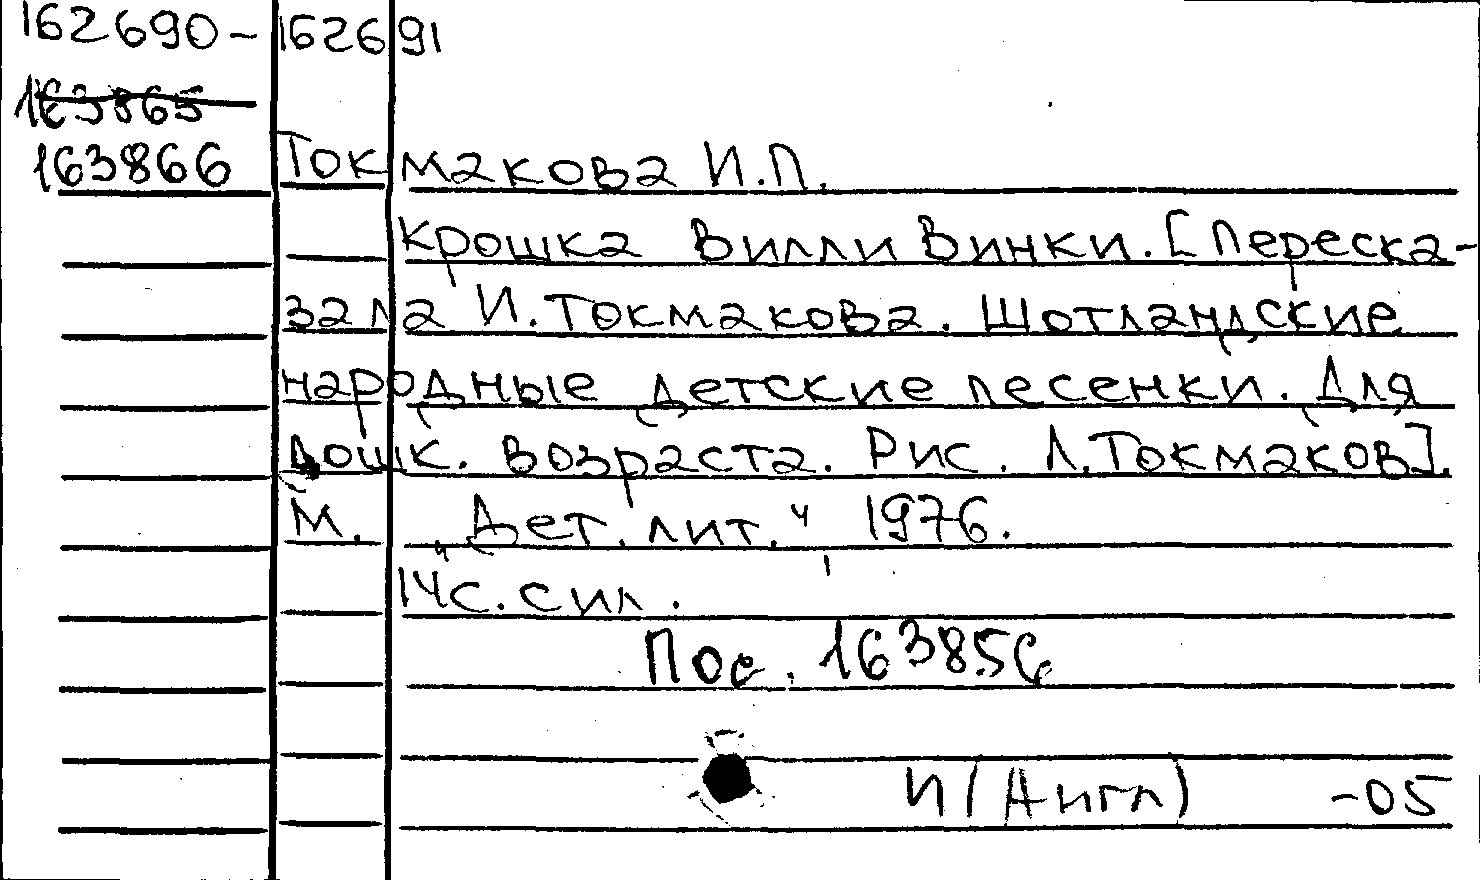 162690-162691
163865
163866 Токмакова И.П.
Крошка Вилли Винки. [Переска-
зала И. Токмакова. Шотландские
народные детские песенки. Для
дошк. возраста. Рис. Л. Токмаков].
М. „Дет. лит.“, 1976.
14с. с ил.
Пос. 163856
И (Англ) -05